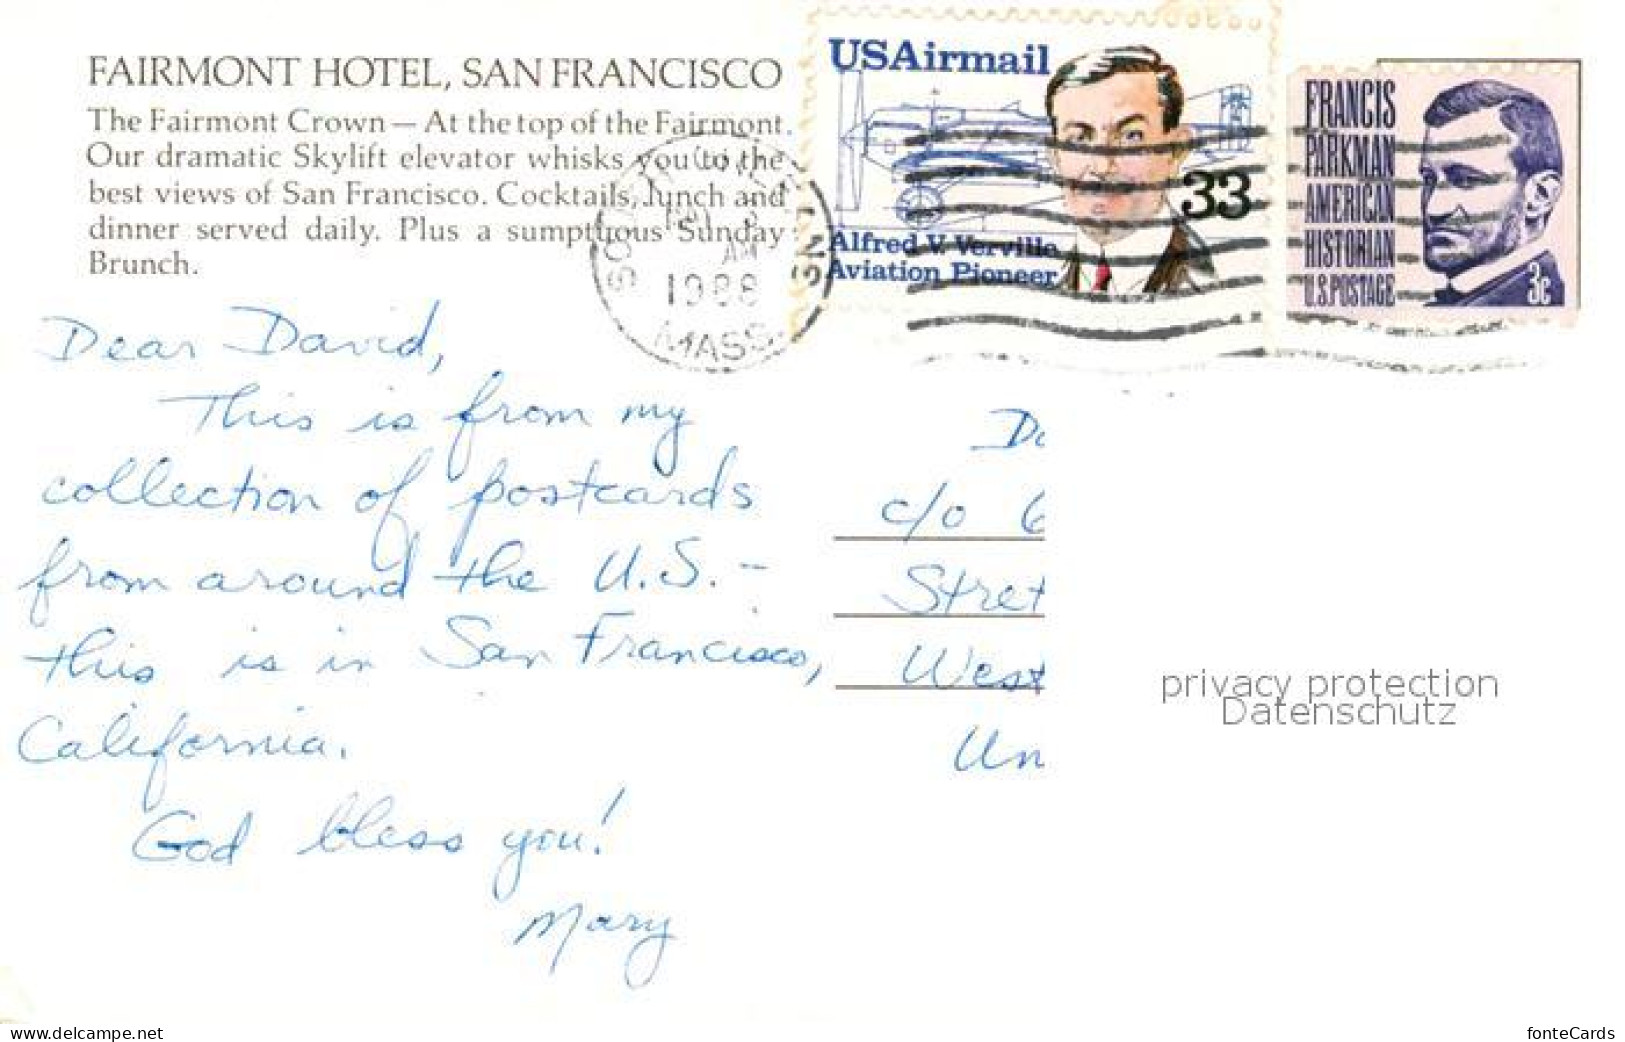 FAIRMONT HOTEL, SAN FRANCISCO
The Fairmont Crown — At the top of the Fairmont.
Our dramatic Skylift elevator whisks you to the
best views of San Francisco. Cocktails, lunch and
dinner served daily. Plus a sumptuous Sunday
Brunch.
USAirmail
33
Alfred V. Verville
Aviation Pioneer
FRANCIS
PARKMAN
AMERICAN
HISTORIAN
U.S. POSTAGE
3c
AM
1988
MASS
Dear David,
This is from my
collection of postcards
from around the U.S. -
this is in San Francisco,
California.
God bless you!
Mary
c/o
Stret
West
Un
privacy protection
Datenschutz
www.delcampe.net
fonteCards